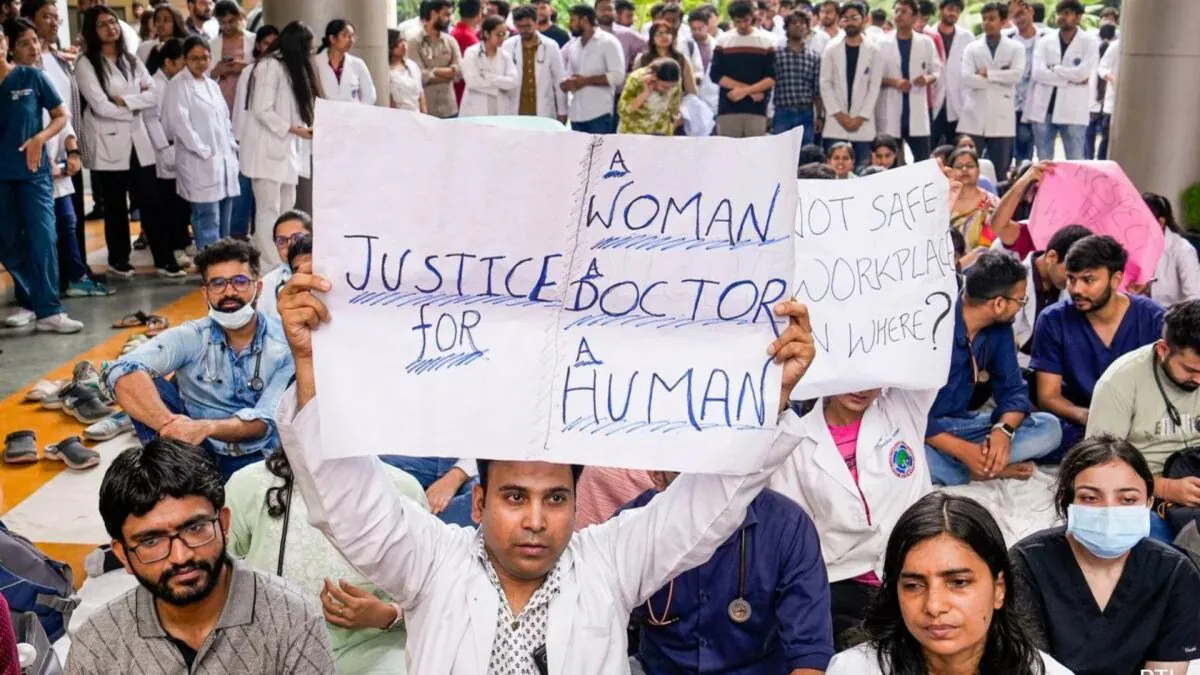 JUSTICE
fOR
A
WOMAN
A
DOCTOR
A
HUMAN
NOT SAFE
WORKPLACE
WHERE?